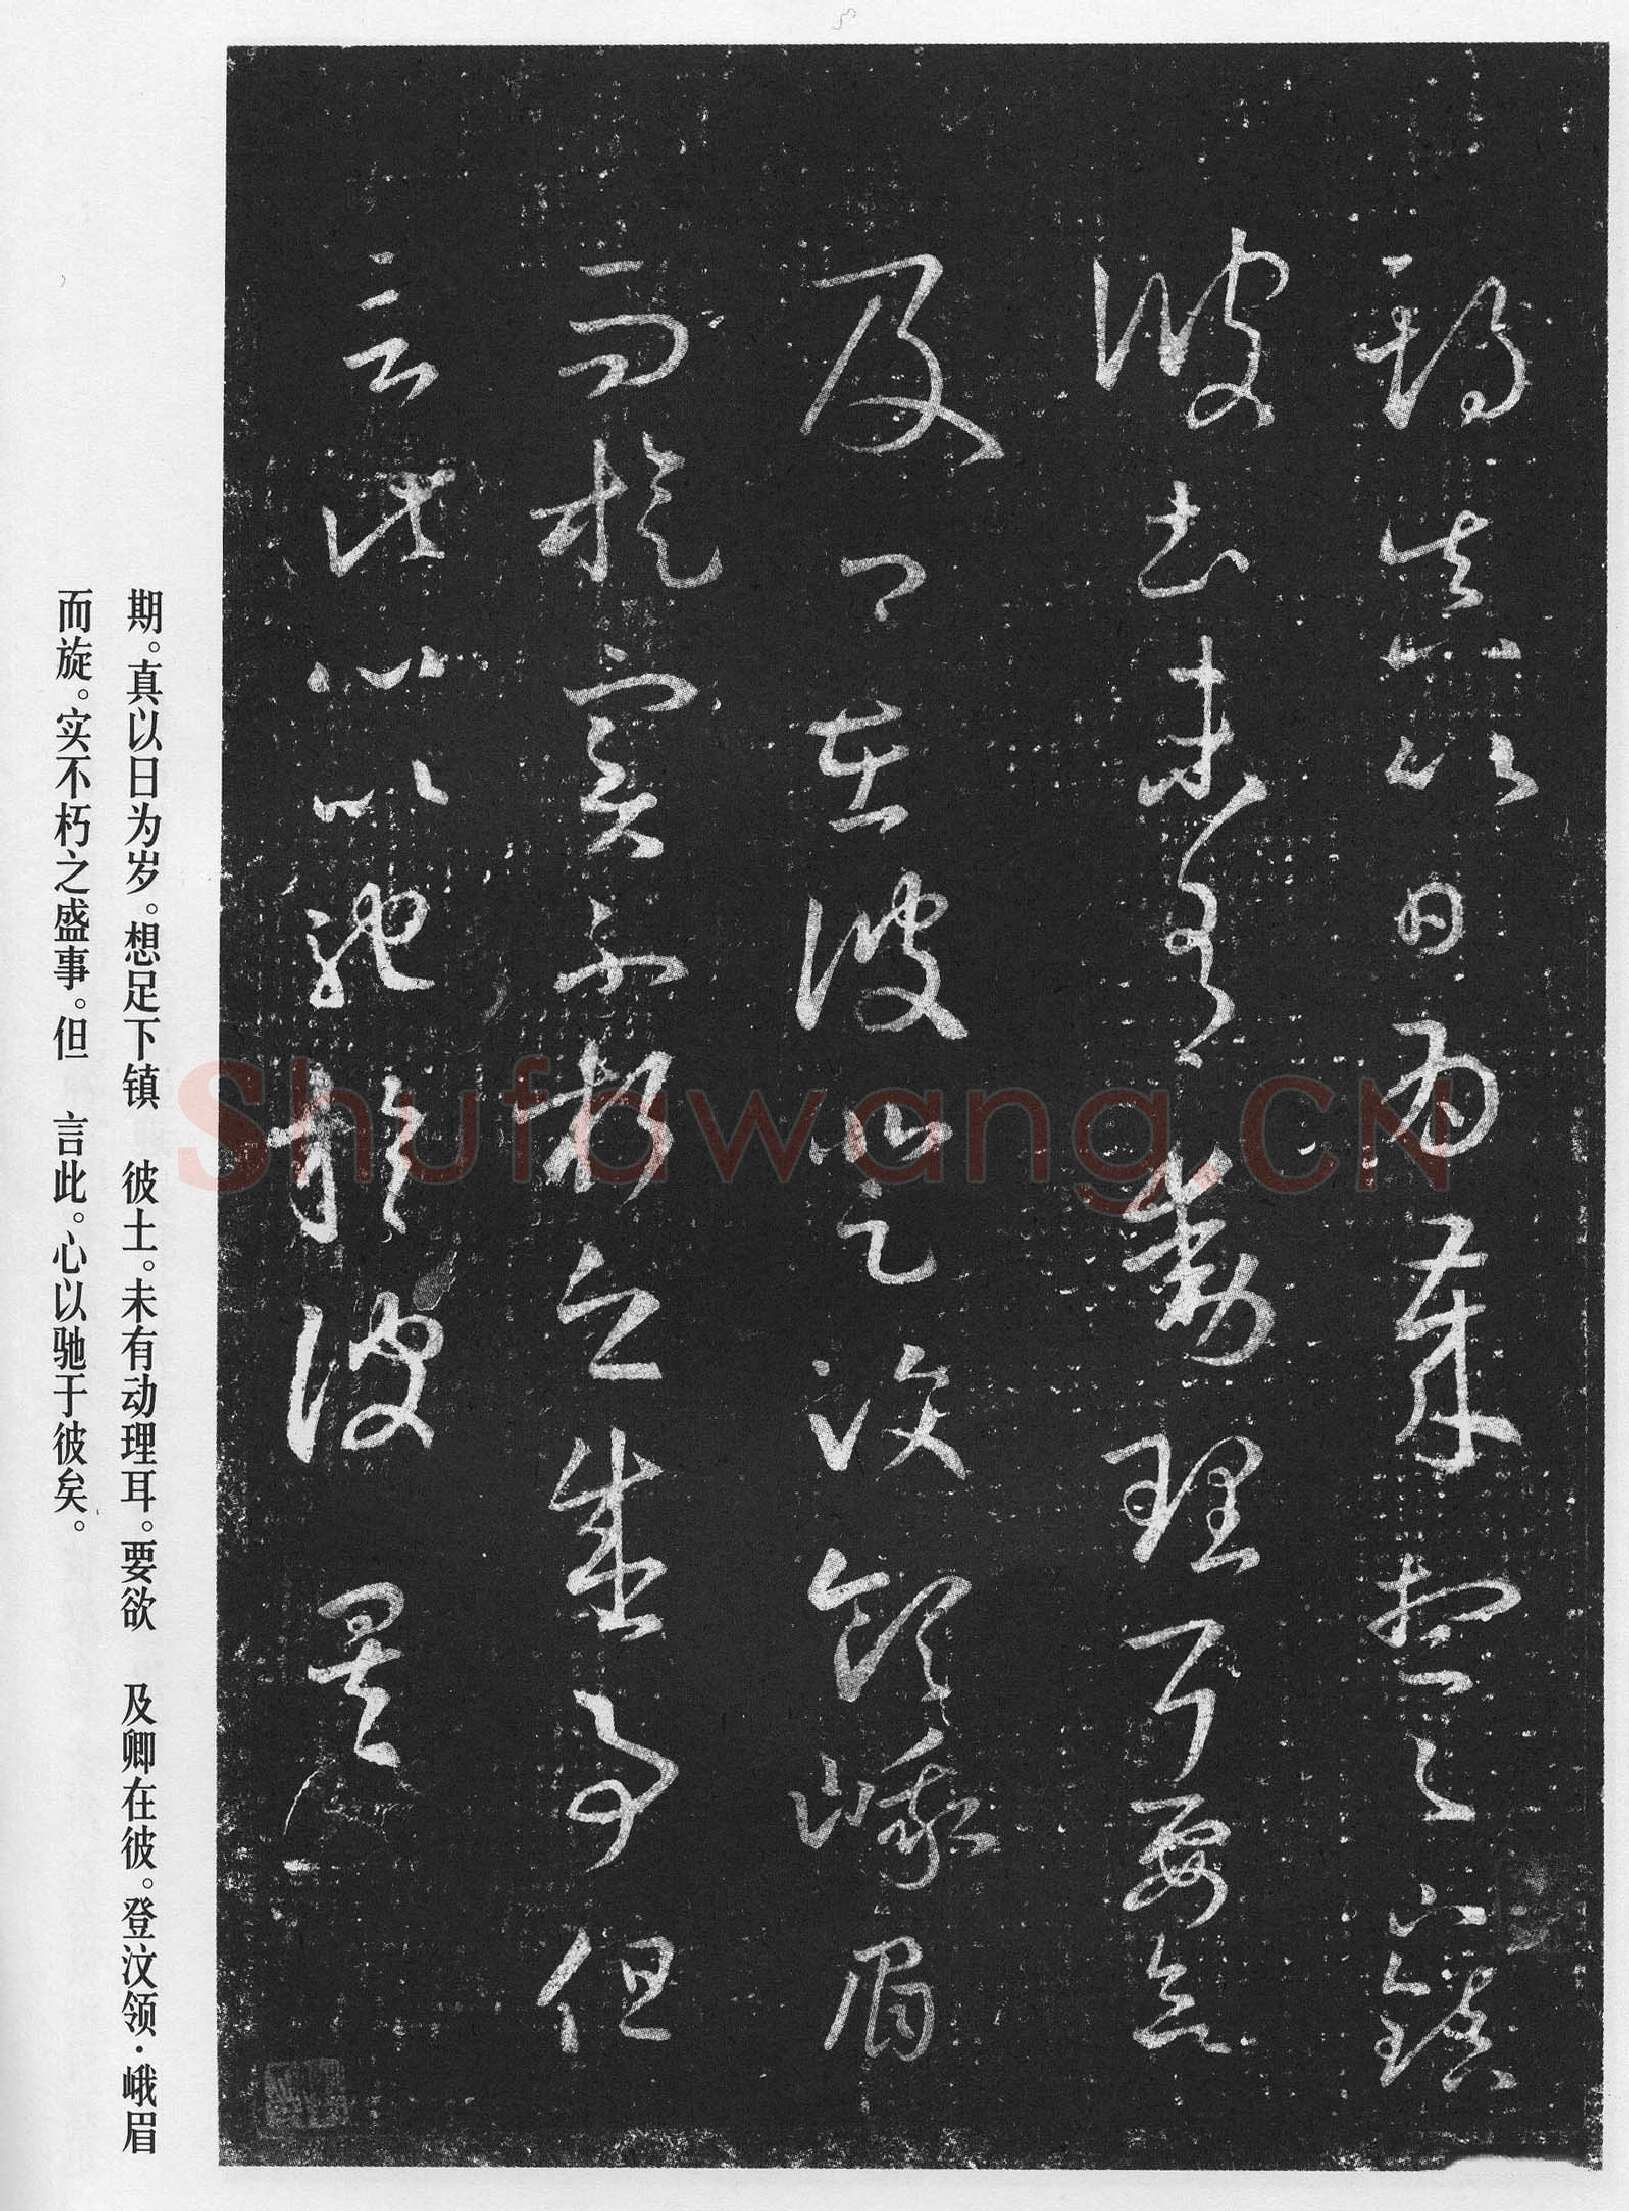 期真以日为歲想足下鎮
彼土未有動理耳要欲
及卿在彼登汶領峨眉
而旋實不朽之盛事但
言此心以馳於彼矣
期。真以日为岁。想足下镇 彼土。未有动理耳。要欲 及卿在彼。登汶领·峨眉
而旋。实不朽之盛事。但 言此。心以驰于彼矣。
Shufawang.CN